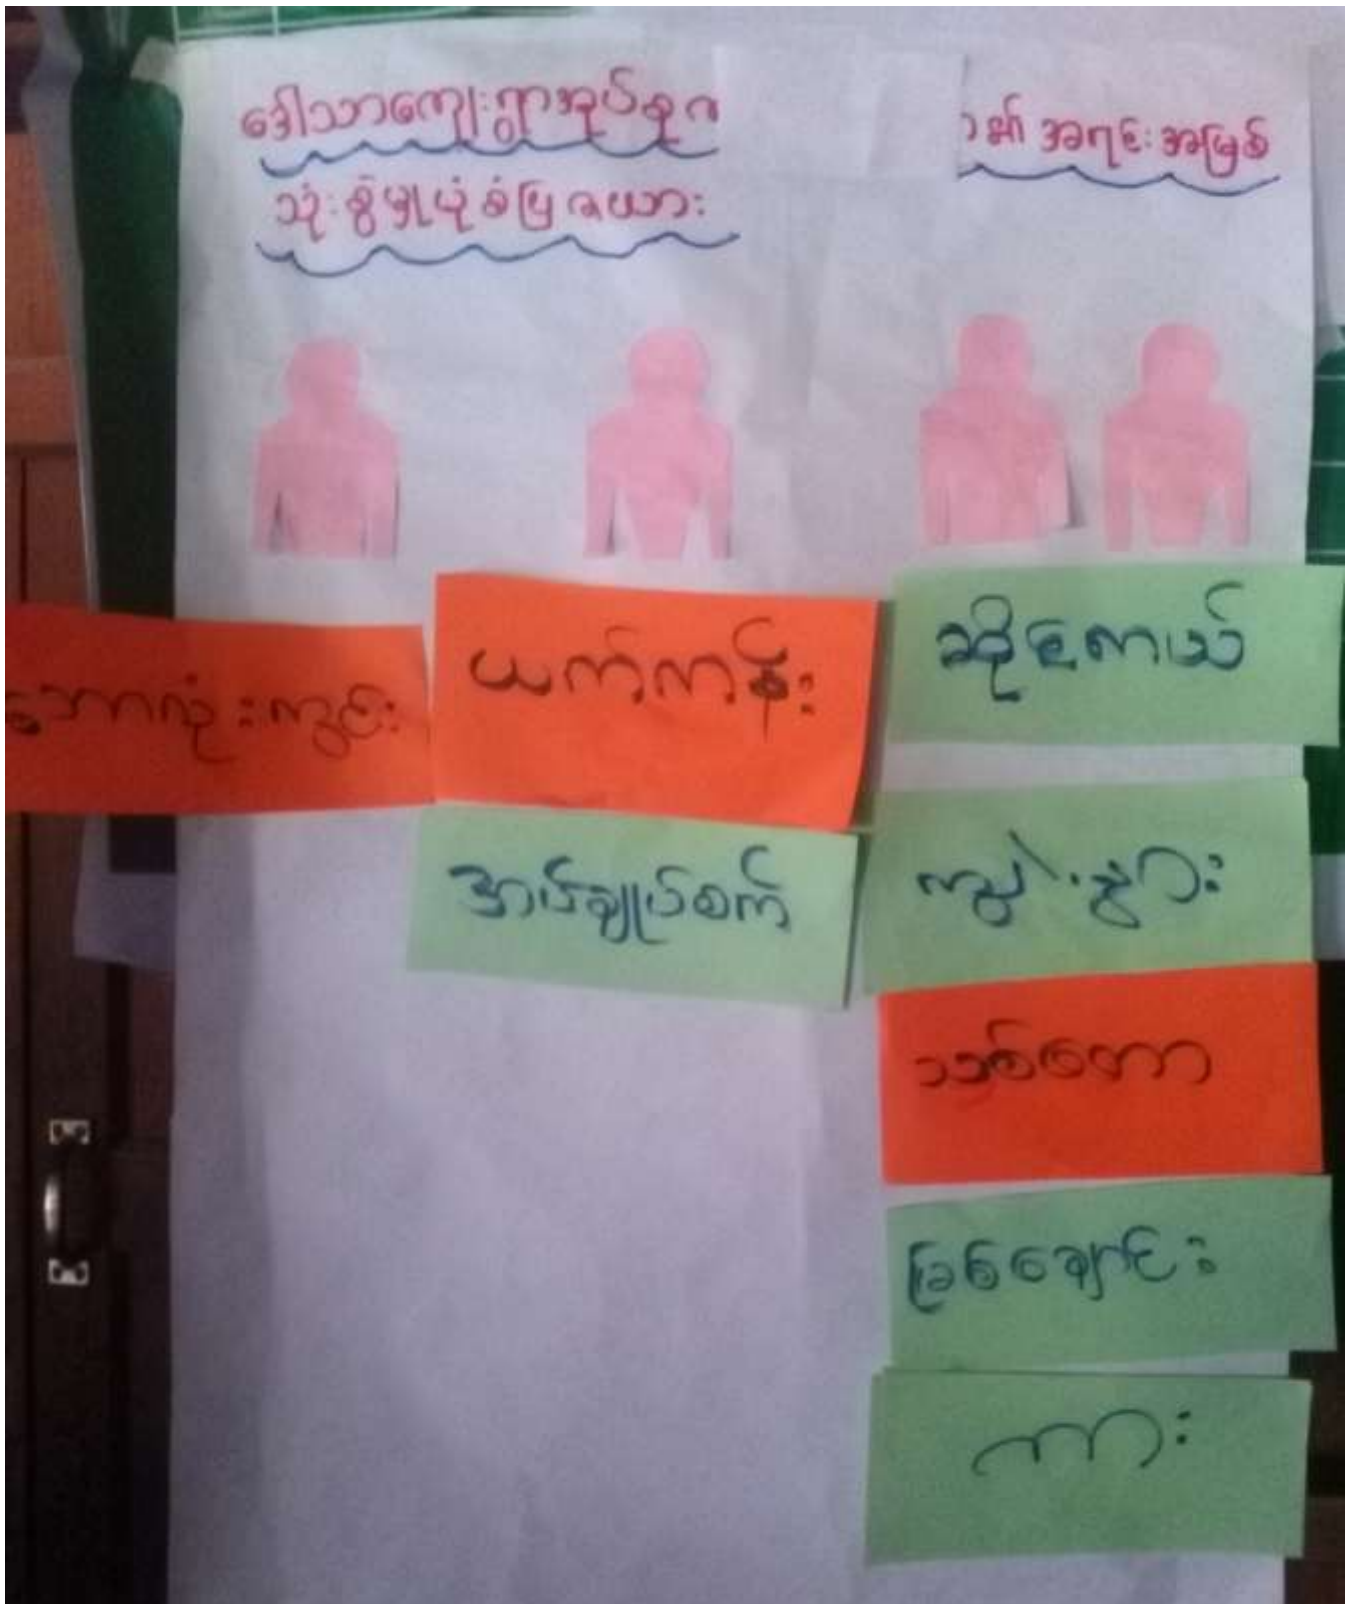 ဒေါသာကျေးရွာအုပ်စုဂ ၁၏ အရင်းအမြစ်
သုံးစွဲမှုပုံစံပြဇယား
ဘောလုံးကွင်း
ယက်ကန်း
ဆိုင်ကယ်
အပ်ချုပ်စက်
ကျွဲ၊နွား
သစ်တော
မြစ်ချောင်း
ကား